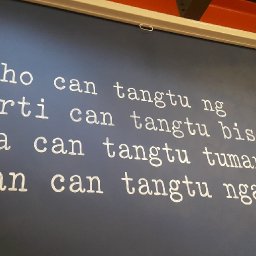 ho can tangtu ng
rti can tangtu bis
a can tangtu tuma
an can tangtu nga